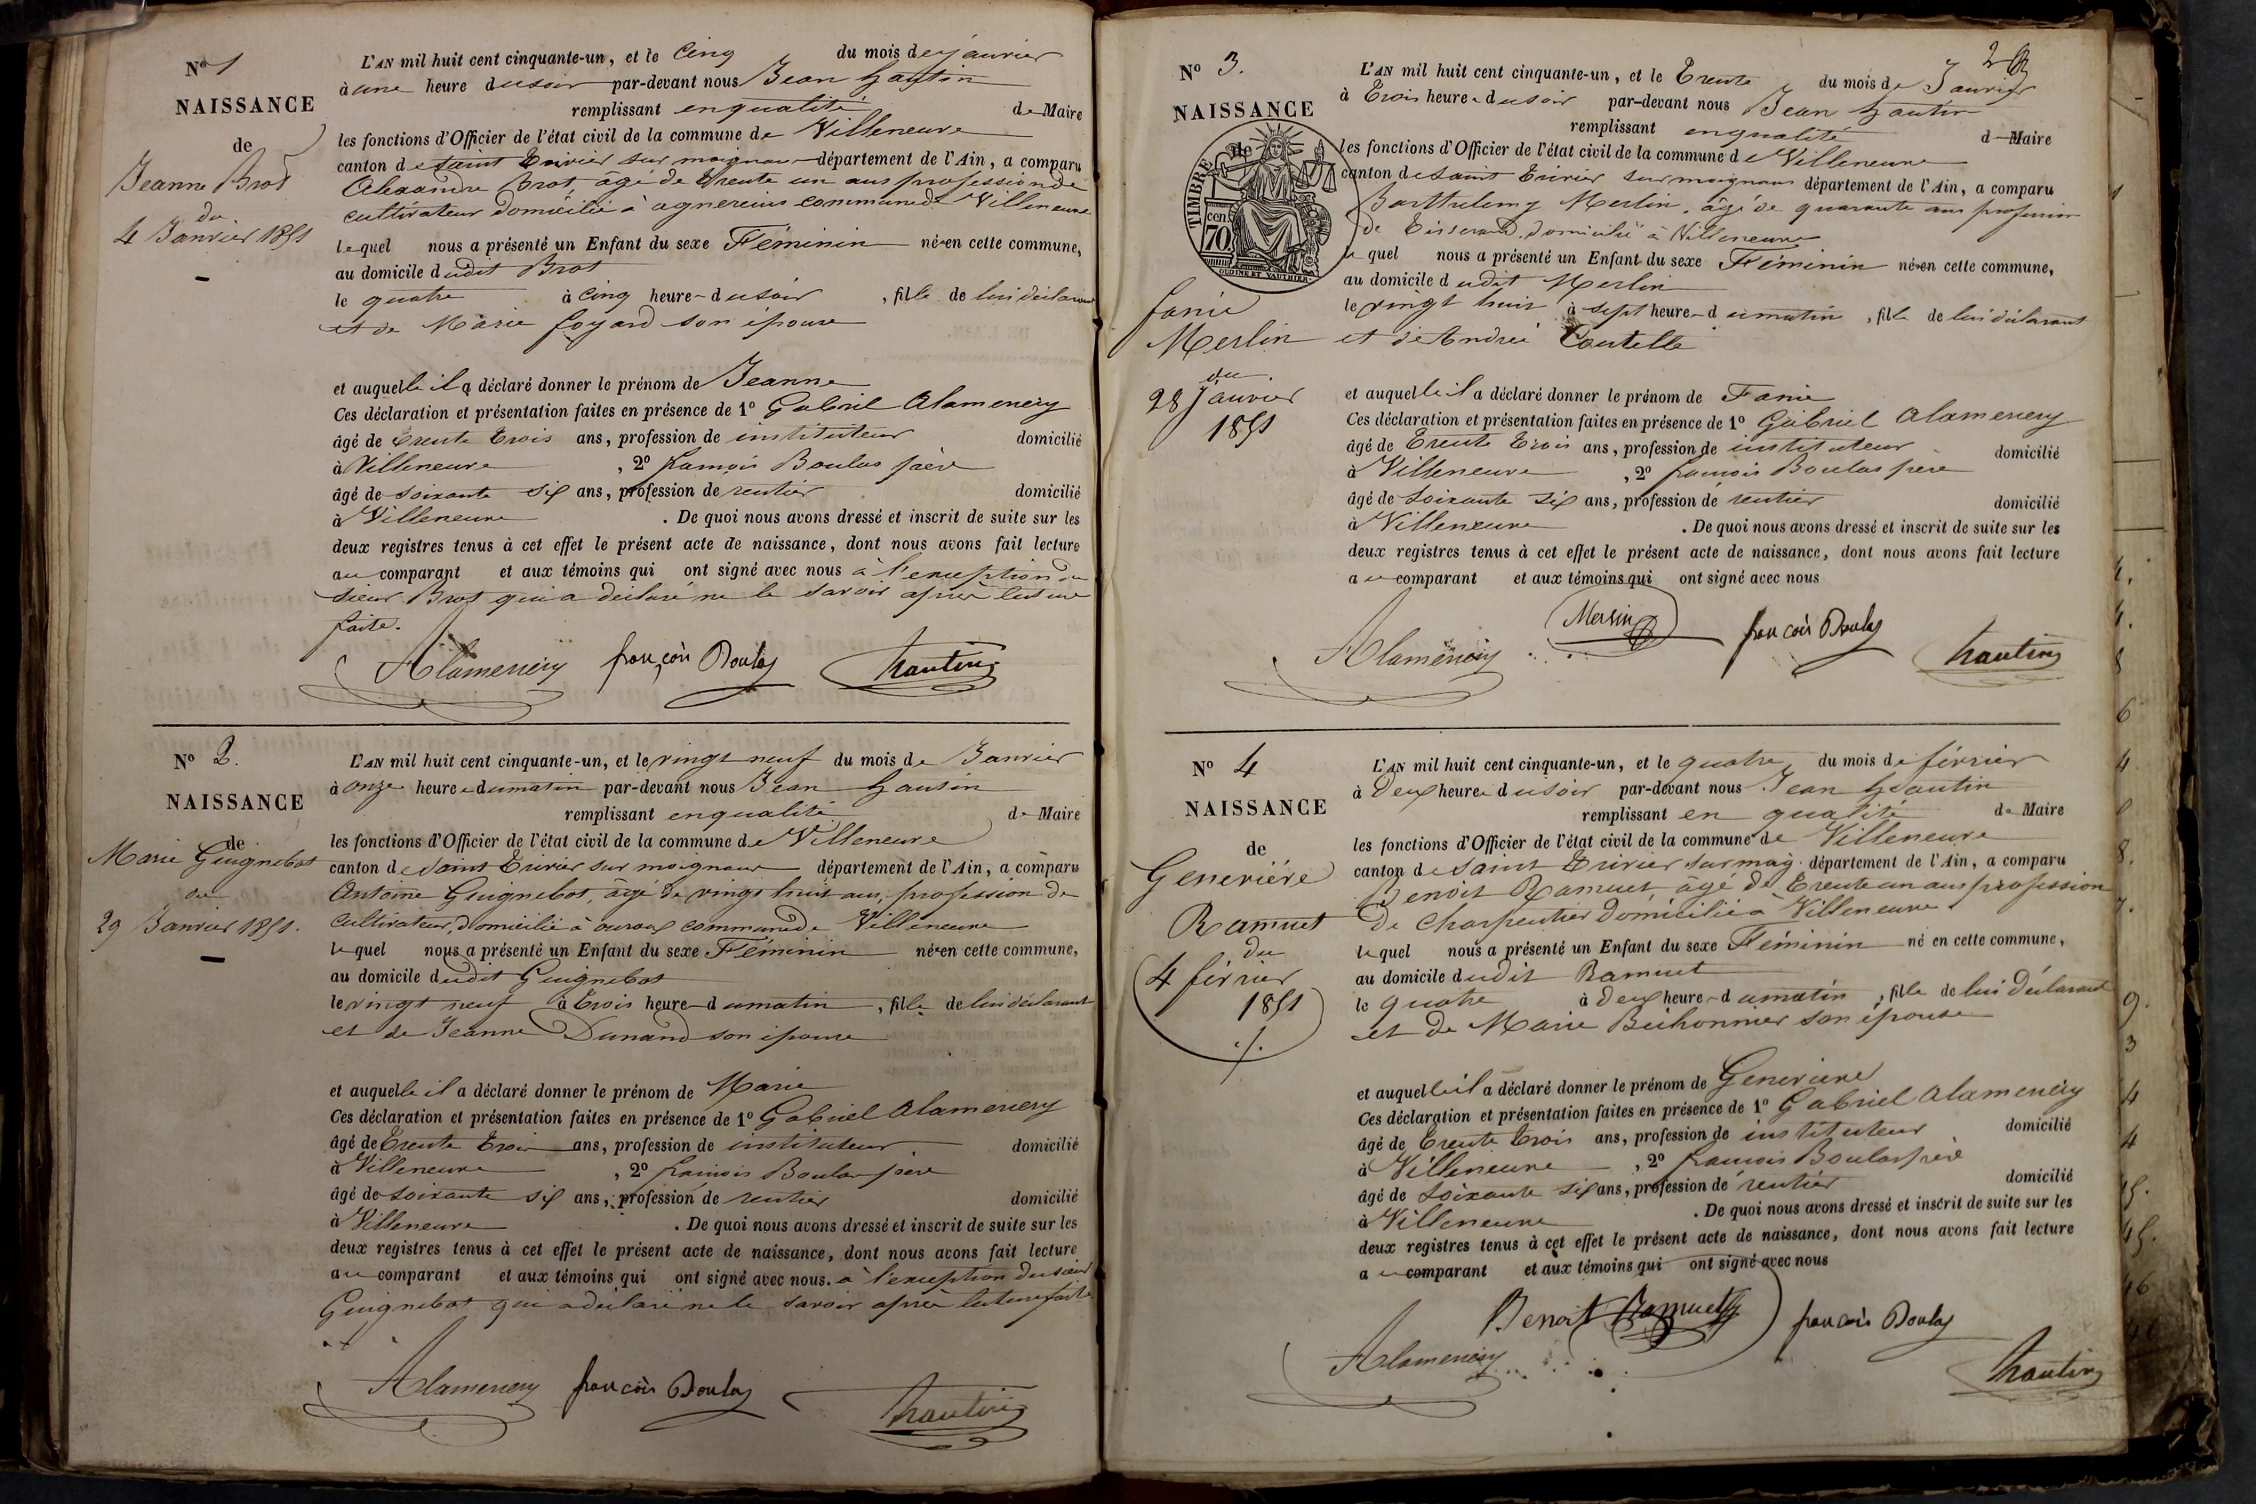 Nº 1
NAISSANCE
de
Jeanne Brot
du
4 Janvier 1851
L'AN mil huit cent cinquante-un, et le Cinq du mois de janvier
à une heure du soir par-devant nous Jean hautin
remplissant en qualité de Maire
les fonctions d'Officier de l'état civil de la commune de Villeneuve
canton de Saint Trivier sur moignans département de l'Ain, a comparu
Alexandre Brot, âgé de Trente un ans profession de
cultivateur domicilié à agnereins commune de Villeneuve
lequel nous a présenté un Enfant du sexe Féminin né en cette commune,
au domicile dudit Brot
le quatre à Cinq heure du soir, fille de lui déclarant
et de Marie foyard son épouse
et auquelle il a déclaré donner le prénom de Jeanne
Ces déclaration et présentation faites en présence de 1º Gabriel Alamercery
âgé de Trente Trois ans, profession de instituteur domicilié
à Villeneuve, 2º françois Boulas père
âgé de soixante six ans, profession de rentier domicilié
à Villeneuve. De quoi nous avons dressé et inscrit de suite sur les
deux registres tenus à cet effet le présent acte de naissance, dont nous avons fait lecture
au comparant et aux témoins qui ont signé avec nous à l'exception du
sieur Brot qui a déclaré ne le savoir après lecture
faite.
Alamercery françois Boulas hautin
Nº 2.
NAISSANCE
de
Marie Guignebot
du
29 Janvier 1851.
L'AN mil huit cent cinquante-un, et le vingt neuf du mois de Janvier
à onze heure du matin par-devant nous Jean hautin
remplissant en qualité de Maire
les fonctions d'Officier de l'état civil de la commune de Villeneuve
canton de Saint Trivier sur moignans département de l'Ain, a comparu
Antoine Guignebot, âgé de vingt huit ans, profession de
cultivateur, domicilié à commune de Villeneuve
lequel nous a présenté un Enfant du sexe Féminin né en cette commune,
au domicile dudit Guignebot
le vingt neuf à Trois heure du matin, fille de lui déclarant
et de Jeanne Dunand son épouse
et auquelle il a déclaré donner le prénom de Marie
Ces déclaration et présentation faites en présence de 1º Gabriel Alamercery
âgé de Trente Trois ans, profession de instituteur domicilié
à Villeneuve, 2º françois Boulas père
âgé de soixante six ans, profession de rentier domicilié
à Villeneuve. De quoi nous avons dressé et inscrit de suite sur les
deux registres tenus à cet effet le présent acte de naissance, dont nous avons fait lecture
au comparant et aux témoins qui ont signé avec nous. à l'exception du sieur
Guignebot qui a déclaré ne le savoir après lecture faite
Alamercery françois Boulas hautin
2
Nº 3.
NAISSANCE
de
TIMBRE
cen. 70.
OUDINE ET VAUTHIER
fanie
Merlin
du
28 Janvier
1851
L'AN mil huit cent cinquante-un, et le Trente du mois de Janvier
à Trois heure du soir par-devant nous Jean hautin
remplissant en qualité d Maire
les fonctions d'Officier de l'état civil de la commune de Villeneuve
canton de Saint Trivier sur moignans département de l'Ain, a comparu
Barthelemy Merlin, âgé de quarante ans profession
de Tisserand, domicilié à Villeneuve
lequel nous a présenté un Enfant du sexe Féminin né en cette commune,
au domicile dudit Merlin
le vingt huit à sept heure du matin, fille de lui déclarant
et de Andrée Coutelle
et auquelle il a déclaré donner le prénom de Fanie
Ces déclaration et présentation faites en présence de 1º Gabriel Alamercery
âgé de Trente Trois ans, profession de instituteur domicilié
à Villeneuve, 2º françois Boulas père
âgé de soixante six ans, profession de rentier domicilié
à Villeneuve. De quoi nous avons dressé et inscrit de suite sur les
deux registres tenus à cet effet le présent acte de naissance, dont nous avons fait lecture
au comparant et aux témoins qui ont signé avec nous
Alamercery Merlin françois Boulas hautin
Nº 4
NAISSANCE
de
Geneviéve
Ramuet
du
4 février
1851
L'AN mil huit cent cinquante-un, et le quatre du mois de février
à Deux heure du soir par-devant nous Jean hautin
remplissant en qualité de Maire
les fonctions d'Officier de l'état civil de la commune de Villeneuve
canton de Saint Trivier sur moig. département de l'Ain, a comparu
Benoit Ramuet, âgé de Trente un ans profession
de charpentier domicilié à Villeneuve
lequel nous a présenté un Enfant du sexe Féminin né en cette commune,
au domicile dudit Ramuet
le quatre à Deux heure du matin, fille de lui déclarant
et de Marie Béchonnier son épouse
et auquelle il a déclaré donner le prénom de Geneviève
Ces déclaration et présentation faites en présence de 1º Gabriel Alamercery
âgé de Trente Trois ans, profession de instituteur domicilié
à Villeneuve, 2º françois Boulas père
âgé de soixante six ans, profession de rentier domicilié
à Villeneuve. De quoi nous avons dressé et inscrit de suite sur les
deux registres tenus à cet effet le présent acte de naissance, dont nous avons fait lecture
au comparant et aux témoins qui ont signé avec nous
Alamercery Benoit Ramuet françois Boulas hautin